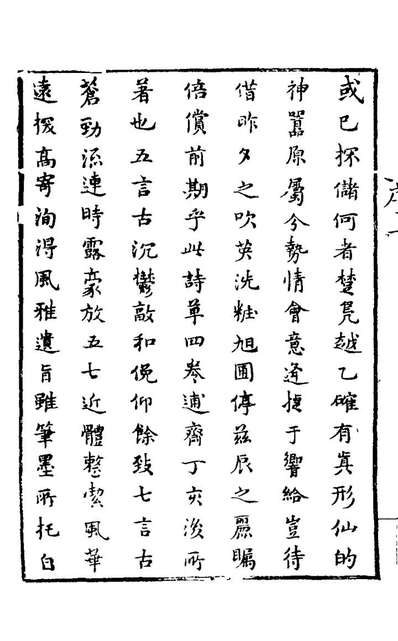 或已探儲何者楚鳧越乙確有真形仙的
神嚚原屬今勢情會意逢捷于響給豈待
借昨夕之吹英洗粧旭圃停茲辰之麗矚
倍償前期乎此詩草四卷逋齋丁亥後所
著也五言古沉鬱敲和俛仰餘致七言古
蒼勁流連時露豪放五七近體整潔風華
遠援高寄洵得風雅遺旨雖筆墨所托自